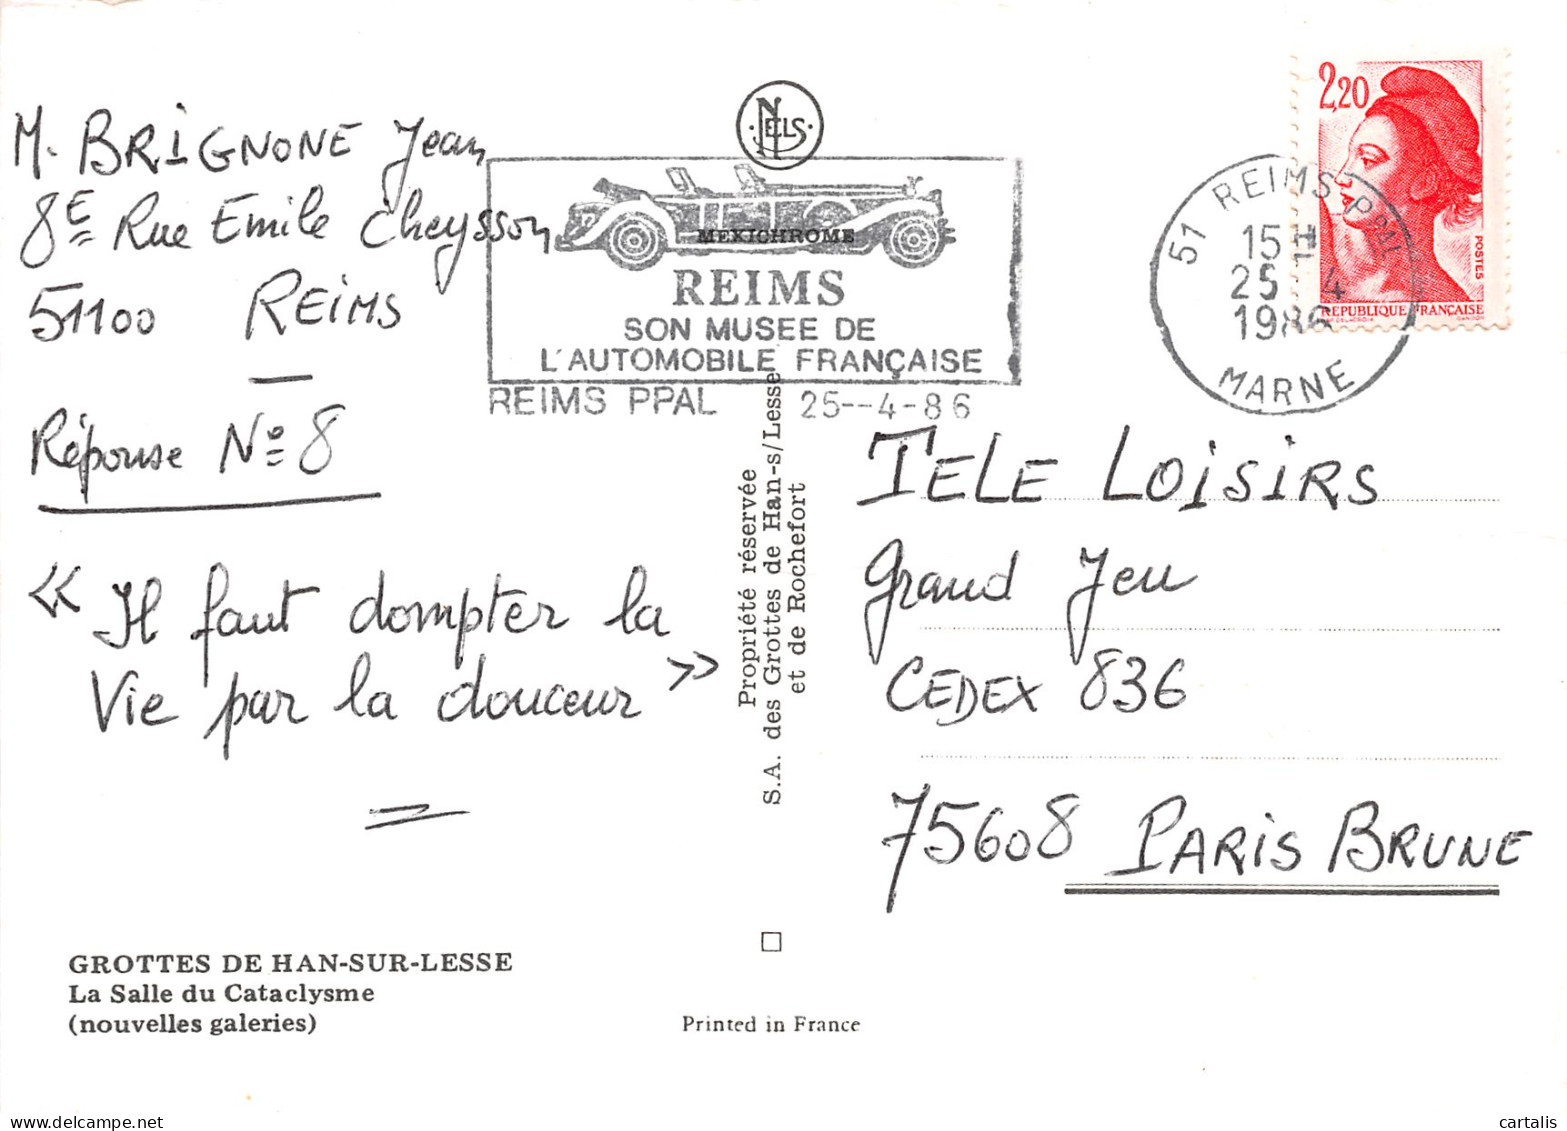 M. BRIGNONE Jean
8E Rue Emile Cheysson
51100 REIMS
Réponse No 8
« Il faut dompter la
Vie par la douceur »
GROTTES DE HAN-SUR-LESSE
La Salle du Cataclysme
(nouvelles galeries)
NELS
MEXICHROME
REIMS
SON MUSEE DE
L'AUTOMOBILE FRANÇAISE
REIMS PPAL 25--4-86
Propriété réservée
S.A. des Grottes de Han-s/Lesse
et de Rochefort
Printed in France
2,20
POSTES
REPUBLIQUE FRANÇAISE
51 REIMS PPAL
15 H
25 4
1986
MARNE
TELE LOISIRS
Grand Jeu
CEDEX 836
75608 PARIS BRUNE
cartalis
delcampe.net